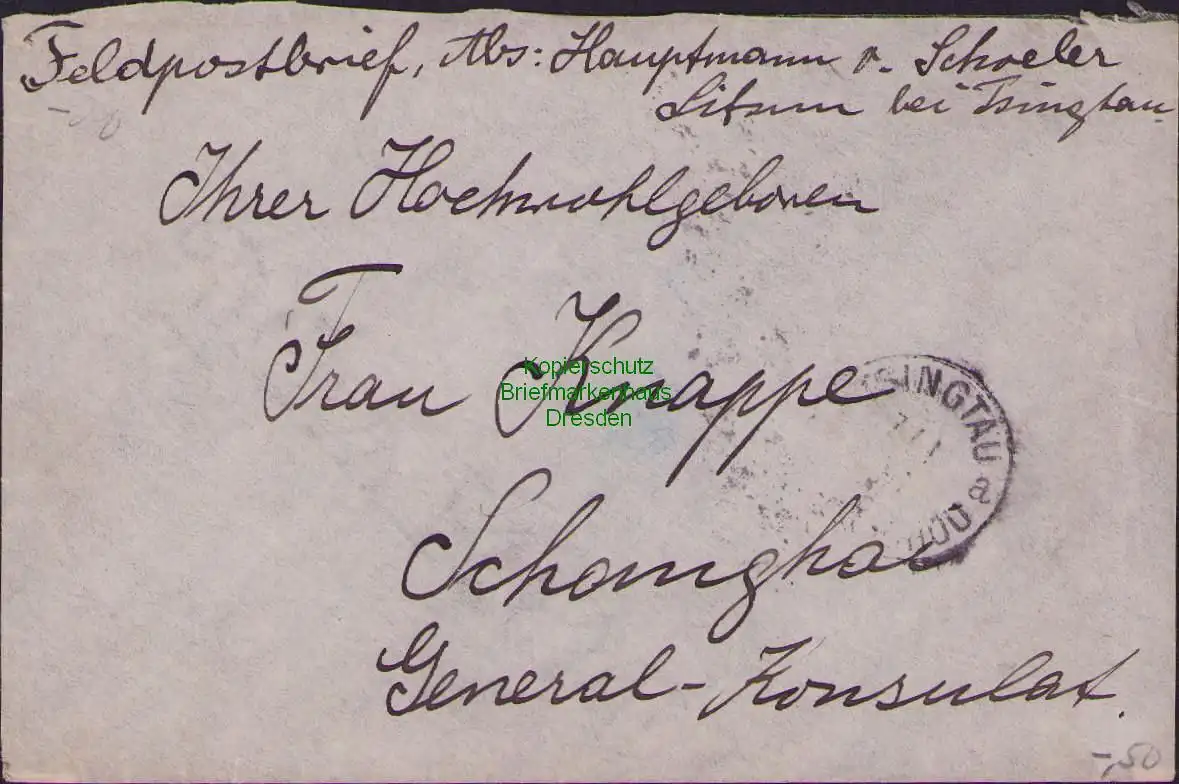 Feldpostbrief, Abs: Hauptmann v. Schoeler
Litsun bei Tsingtau
Ihrer Hochwohlgeboren
Frau Knappe
Schanghai
General-Konsulat.
Kopierschutz
Briefmarkenhaus
Dresden
TSINGTAU
a
-,50